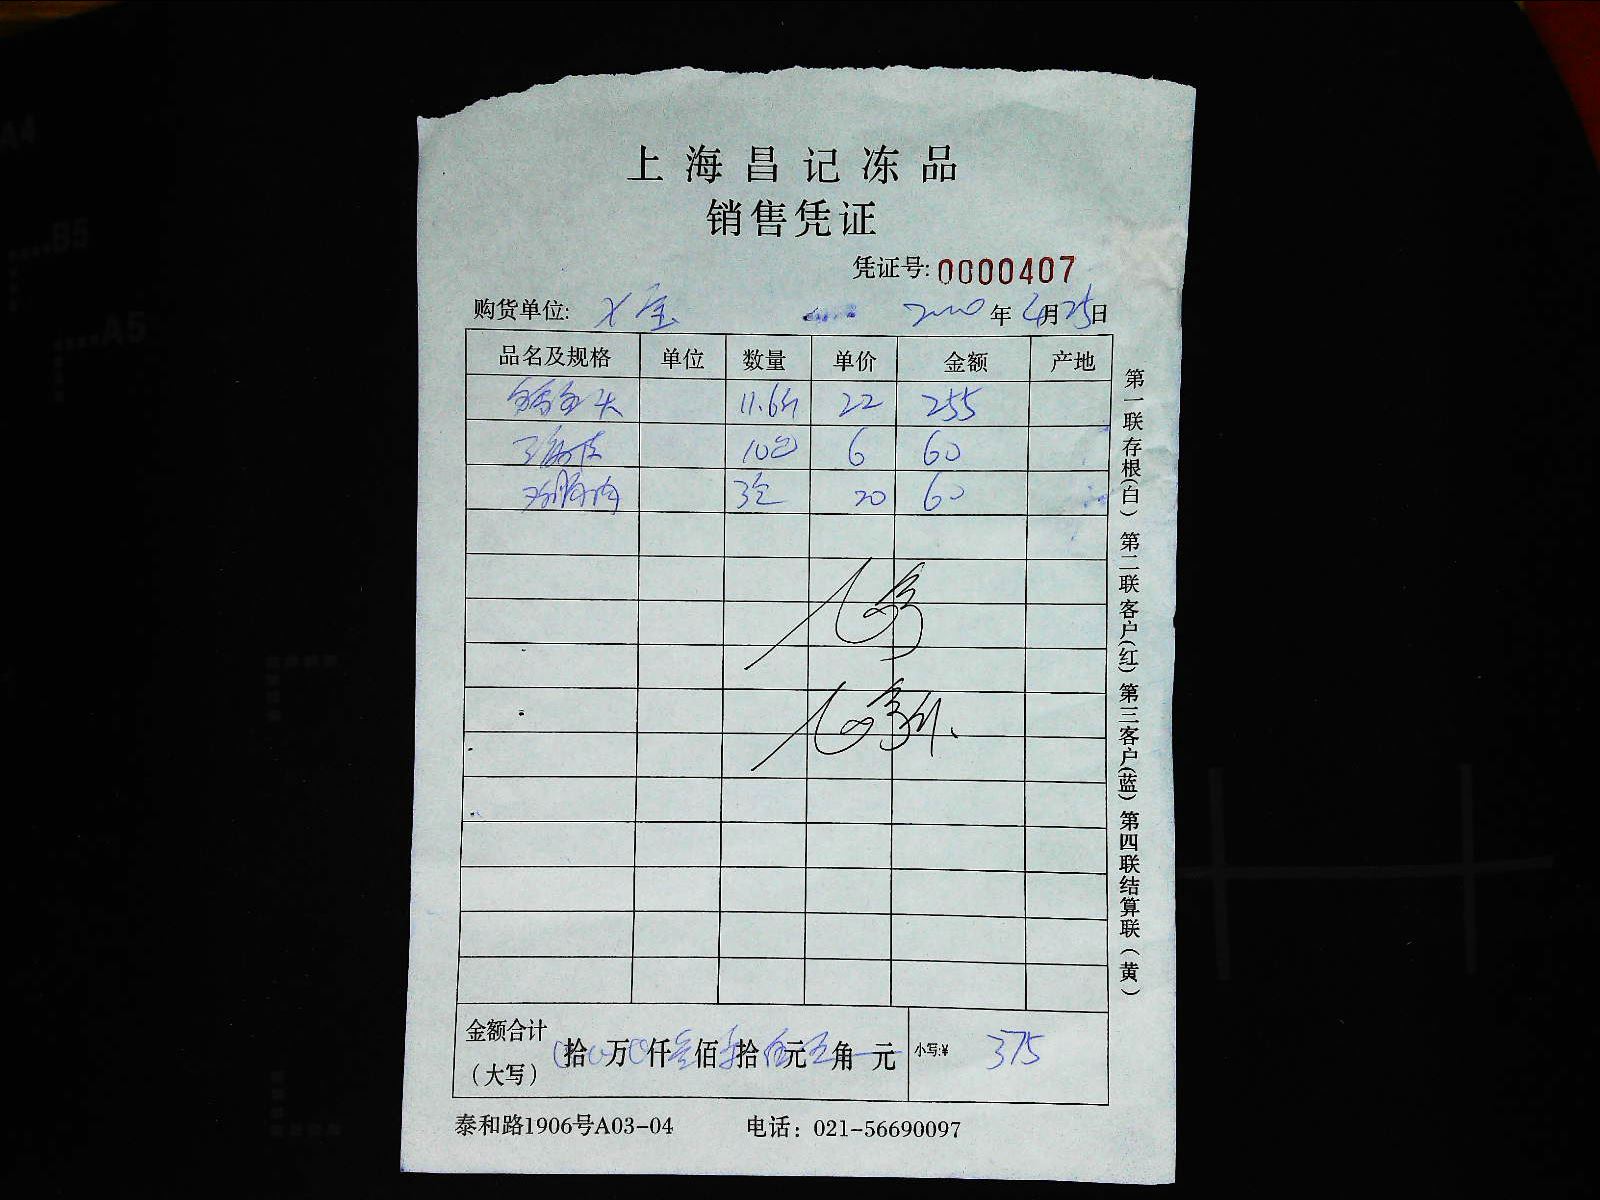 上海昌记冻品
销售凭证
凭证号:0000407
购货单位: 2020年4月25日
品名及规格 单位 数量 单价 金额 产地
11.6斤 22 255
10包 6 60
3包 20 60
金额合计(大写) 拾 万 仟 佰 拾 伍元 角 元 小写:¥ 375
泰和路1906号A03-04 电话：021-56690097
第一联存根(白) 第二联客户(红) 第三客户(蓝) 第四联结算联(黄)
A4
B5
A5